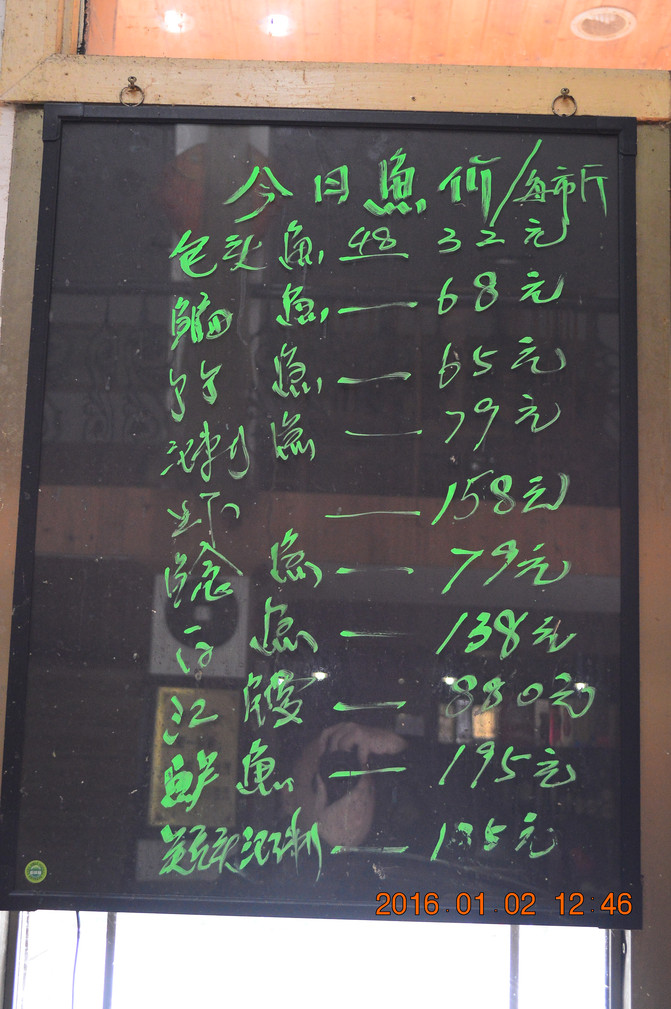 今日魚价/每市斤
包头魚 48 32元
鳊 魚—68元
魚—65元
魚—79元
虾 —158元
鲶 魚—79元
白 魚—138元
江 鳗—880元
鲜 魚—195元
—135元
2016.01.02 12:46